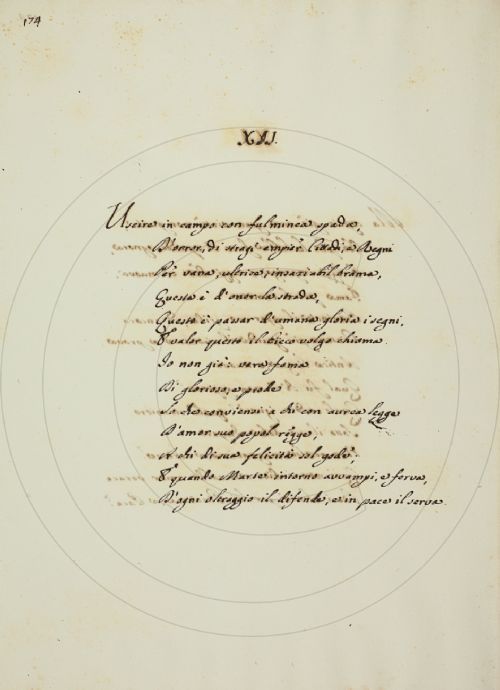 174
XVI.
Uscire in campo con fulminea spada,
D'orror, di stragi empier Cittadi, e Regni
Per vana, ultrice, insaziabil brama,
Questa è d'onor la strada,
Questo è passar d'umana gloria i segni,
E valor questo il cieco volgo chiama.
Io non già: vera fama
Di glorioso, e prode
So che conviensi a chi con aurea legge
D'amor suo popol regge,
A chi di sua felicità sol gode;
E quando Marte intorno avvampi, e ferva,
D'ogni oltraggio il difende, e in pace il serva.